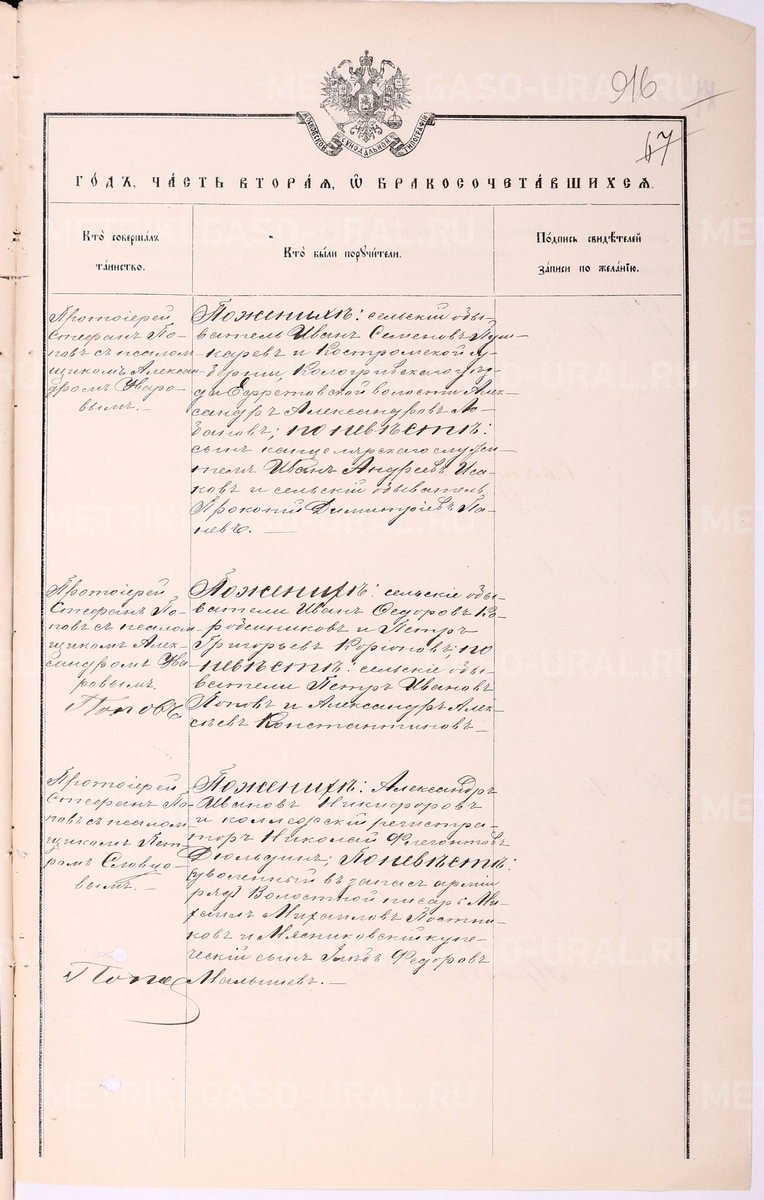 916
67
МОСКОВСКОЙ СУНОДАЛЬНОЙ ТИПОГРАФІИ
ГО́ДЪ, ЧА́СТЬ ВТОРА́Я, Ѿ БРАКОСОЧЕТА́ВШИХСЯ.
Кто̀ совершалъ
та́инство.
Кто̀ бы́ли порꙋчи́тели.
По́дпись свидѣ́телей
за́писи по жела́нїю.
Протоіерей
Стефанъ По-
повъ съ псалом-
щикомъ Алексан-
дромъ Уваро-
вымъ. —
По женихѣ: сельскій обы-
ватель Иванъ Семеновъ Пуш-
каревъ и Костромской гу-
берніи, Кологривскаго уѣз-
да Ефретовской волости Алек-
сандръ Александровъ Ло-
бановъ; по невѣстѣ:
сынъ канцелярскаго служи-
теля Иванъ Андреевъ Иса-
ковъ и сельскій обыватель
Прокопій Димитріевъ Па-
невъ. —
Протоіерей
Стефанъ По-
повъ съ псалом-
щикомъ Алек-
сандромъ Ува-
ровымъ.
Поповъ
По женихѣ: сельскіе обы-
ватели Иванъ Ѳедоровъ
и Петръ
Григорьевъ по
невѣстѣ: сельскіе обы-
ватели Петръ Ивановъ
Поповъ и Александръ Алек-
сѣевъ Константиновъ —
Протоіерей
Стефанъ По-
повъ съ псалом-
щикомъ Пет-
ромъ Словцо-
вымъ. —
Попов
По женихѣ: Александръ
Ивановъ Никифоровъ
и коллежскій регистра-
торъ Николай Флегонтовъ
Дюльдинъ; По невѣстѣ:
уволенный въ запасъ арміи
ряд. Волостной писарь Ми-
хаилъ Михаиловъ Постни-
ковъ и Мясниковскій купе-
ческій сынъ Глѣбъ Ѳедоровъ
Малышевъ. —
METRIKI.GASO-URAL.RU